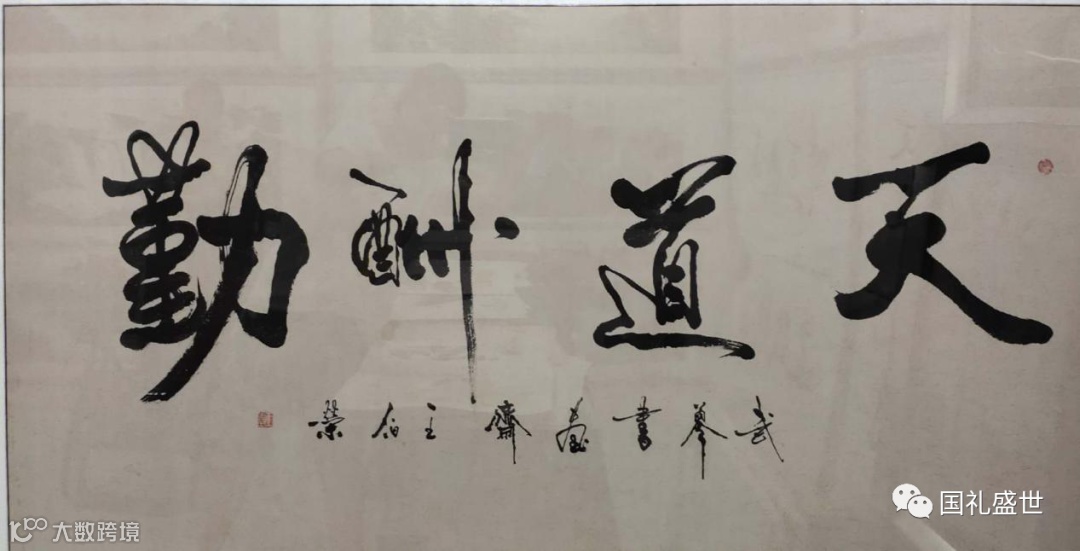 天道酬勤
书画斋主伯荣
国礼盛世
大数跨境